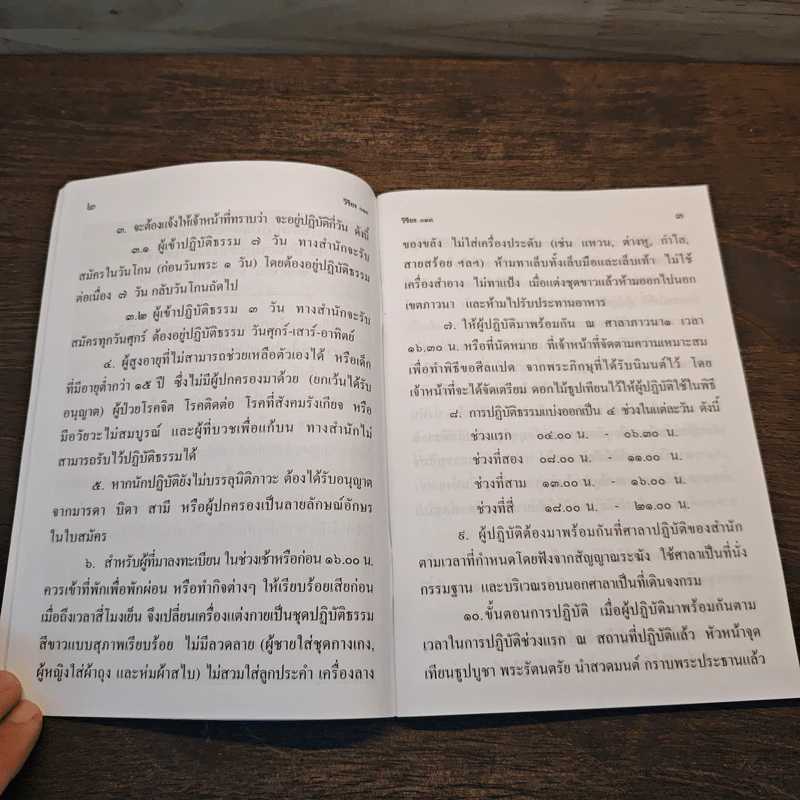 ๒
วิริยะ ๐๑๓
๓. จะต้องแจ้งให้เจ้าหน้าที่ทราบว่า จะอยู่ปฏิบัติกี่วัน ดังนี้
๓.๑ ผู้เข้าปฏิบัติธรรม ๗ วัน ทางสำนักจะรับ
สมัครในวันโกน (ก่อนวันพระ ๑ วัน) โดยต้องอยู่ปฏิบัติธรรม
ต่อเนื่อง ๗ วัน กลับวันโกนถัดไป
๓.๒ ผู้เข้าปฏิบัติธรรม ๓ วัน ทางสำนักจะรับ
สมัครทุกวันศุกร์ ต้องอยู่ปฏิบัติธรรม วันศุกร์-เสาร์-อาทิตย์
๔. ผู้สูงอายุที่ไม่สามารถช่วยเหลือตัวเองได้ หรือเด็ก
ที่มีอายุต่ำกว่า ๑๕ ปี ซึ่งไม่มีผู้ปกครองมาด้วย (ยกเว้นได้รับ
อนุญาต) ผู้ป่วยโรคจิต โรคติดต่อ โรคที่สังคมรังเกียจ หรือ
มีอวัยวะไม่สมบูรณ์ และผู้ที่บวชเพื่อแก้บน ทางสำนักไม่
สามารถรับไว้ปฏิบัติธรรมได้
๕. หากนักปฏิบัติยังไม่บรรลุนิติภาวะ ต้องได้รับอนุญาต
จากมารดา บิดา สามี หรือผู้ปกครองเป็นลายลักษณ์อักษร
ในใบสมัคร
๖. สำหรับผู้ที่มาลงทะเบียน ในช่วงเช้าหรือก่อน ๑๖.๐๐ น.
ควรเข้าที่พักเพื่อพักผ่อน หรือทำกิจต่างๆ ให้เรียบร้อยเสียก่อน
เมื่อถึงเวลาสี่โมงเย็น จึงเปลี่ยนเครื่องแต่งกายเป็นชุดปฏิบัติธรรม
สีขาวแบบสุภาพเรียบร้อย ไม่มีลวดลาย (ผู้ชายใส่ชุดกางเกง,
ผู้หญิงใส่ผ้าถุง และห่มผ้าสไบ) ไม่สวมใส่ลูกประคำ เครื่องลาง
วิริยะ ๐๑๓
๓
ของขลัง ไม่ใส่เครื่องประดับ (เช่น แหวน, ต่างหู, กำไล,
สายสร้อย ฯลฯ) ห้ามทาเล็บทั้งเล็บมือและเล็บเท้า ไม่ใช้
เครื่องสำอาง ไม่ทาแป้ง เมื่อแต่งชุดขาวแล้วห้ามออกไปนอก
เขตภาวนา และห้ามไปรับประทานอาหาร
๗. ให้ผู้ปฏิบัติมาพร้อมกัน ณ ศาลาภาวนา๑ เวลา
๑๖.๓๐ น. หรือที่นัดหมาย ที่เจ้าหน้าที่จัดตามความเหมาะสม
เพื่อทำพิธีขอศีลแปด จากพระภิกษุที่ได้รับนิมนต์ไว้ โดย
เจ้าหน้าที่จะได้จัดเตรียม ดอกไม้ธูปเทียนไว้ให้ผู้ปฏิบัติใช้ในพิธี
๘. การปฏิบัติธรรมแบ่งออกเป็น ๔ ช่วงในแต่ละวัน ดังนี้
ช่วงแรก ๐๔.๐๐ น. - ๐๖.๓๐ น.
ช่วงที่สอง ๐๘.๐๐ น. - ๑๑.๐๐ น.
ช่วงที่สาม ๑๓.๐๐ น. - ๑๖.๐๐ น.
ช่วงที่สี่ ๑๘.๐๐ น. - ๒๑.๐๐ น.
๙. ผู้ปฏิบัติต้องมาพร้อมกันที่ศาลาปฏิบัติของสำนัก
ตามเวลาที่กำหนดโดยฟังจากสัญญาณระฆัง ใช้ศาลาเป็นที่นั่ง
กรรมฐาน และบริเวณรอบนอกศาลาเป็นที่เดินจงกรม
๑๐.ขั้นตอนการปฏิบัติ เมื่อผู้ปฏิบัติมาพร้อมกันตาม
เวลาในการปฏิบัติช่วงแรก ณ สถานที่ปฏิบัติแล้ว หัวหน้าจุด
เทียนธูปบูชา พระรัตนตรัย นำสวดมนต์ กราบพระประธานแล้ว